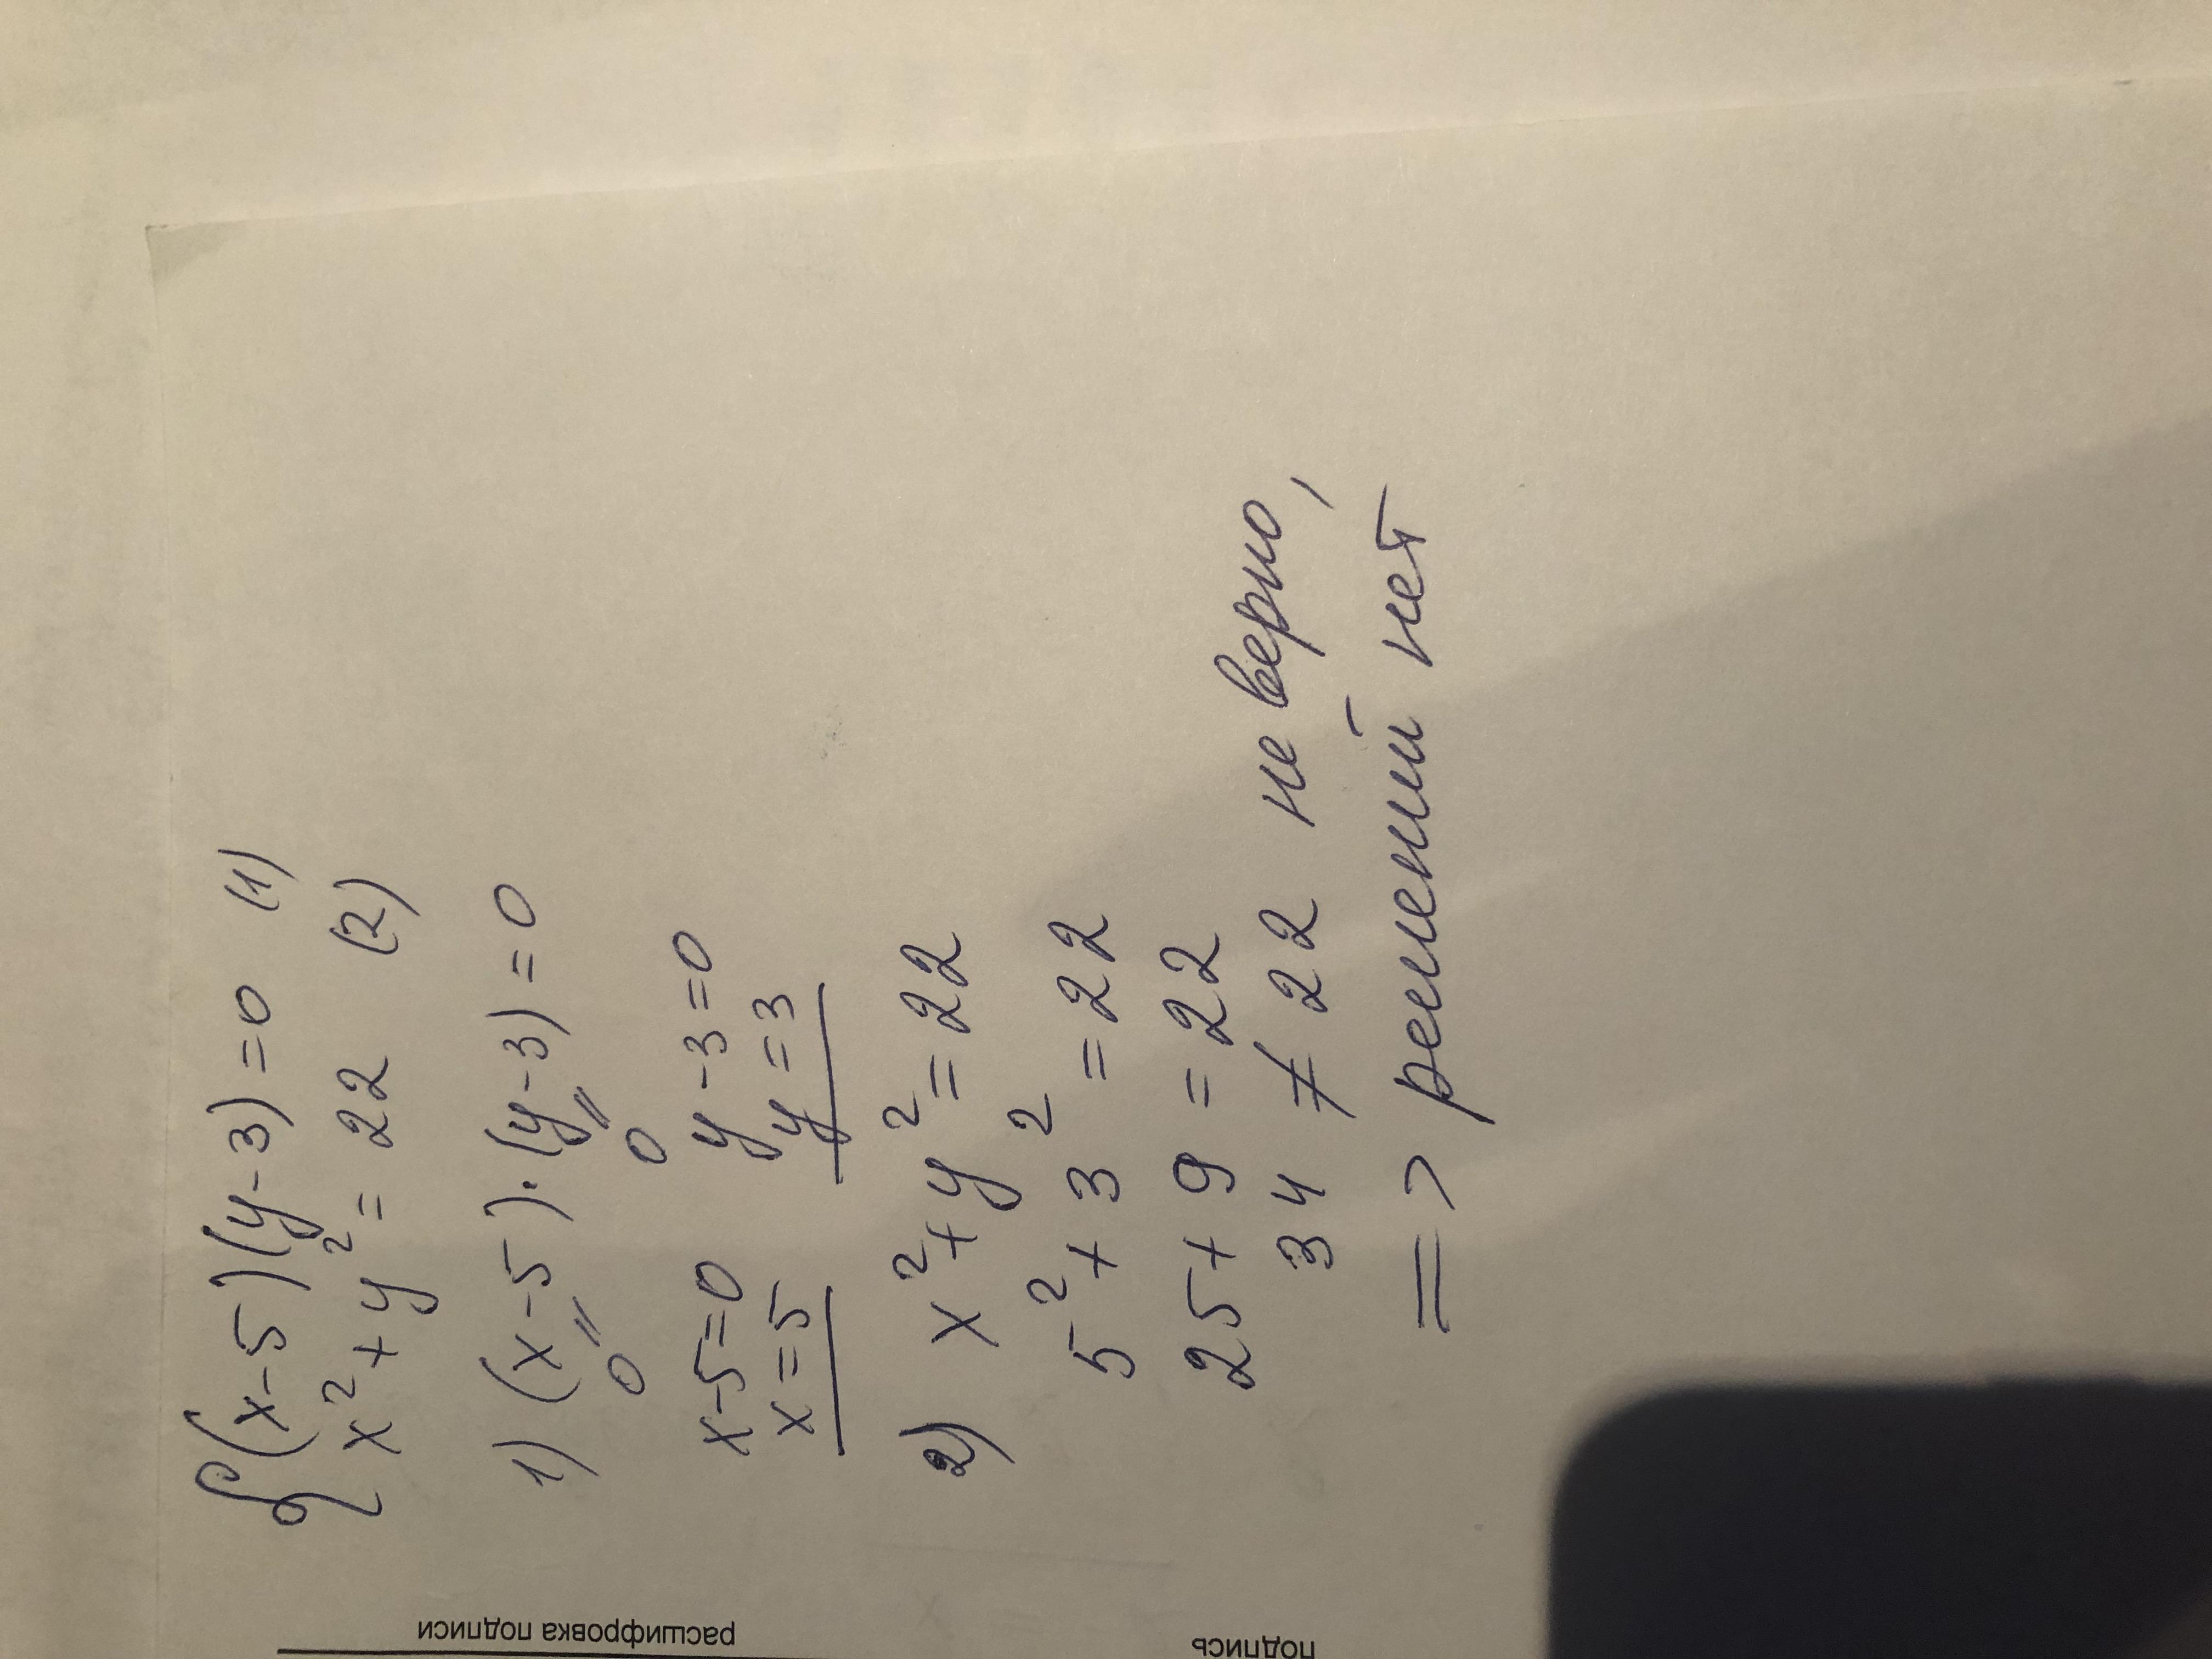 {(x-5)(y-3)=0 (1)
x²+y²=22 (2)
1) (x-5)·(y-3)=0
0" 0"
x-5=0 y-3=0
x=5 y=3
2) x²+y²=22
5²+3²=22
25+9=22
34≠22 не верно,
=> решений нет
расшифровка подписи
подпись